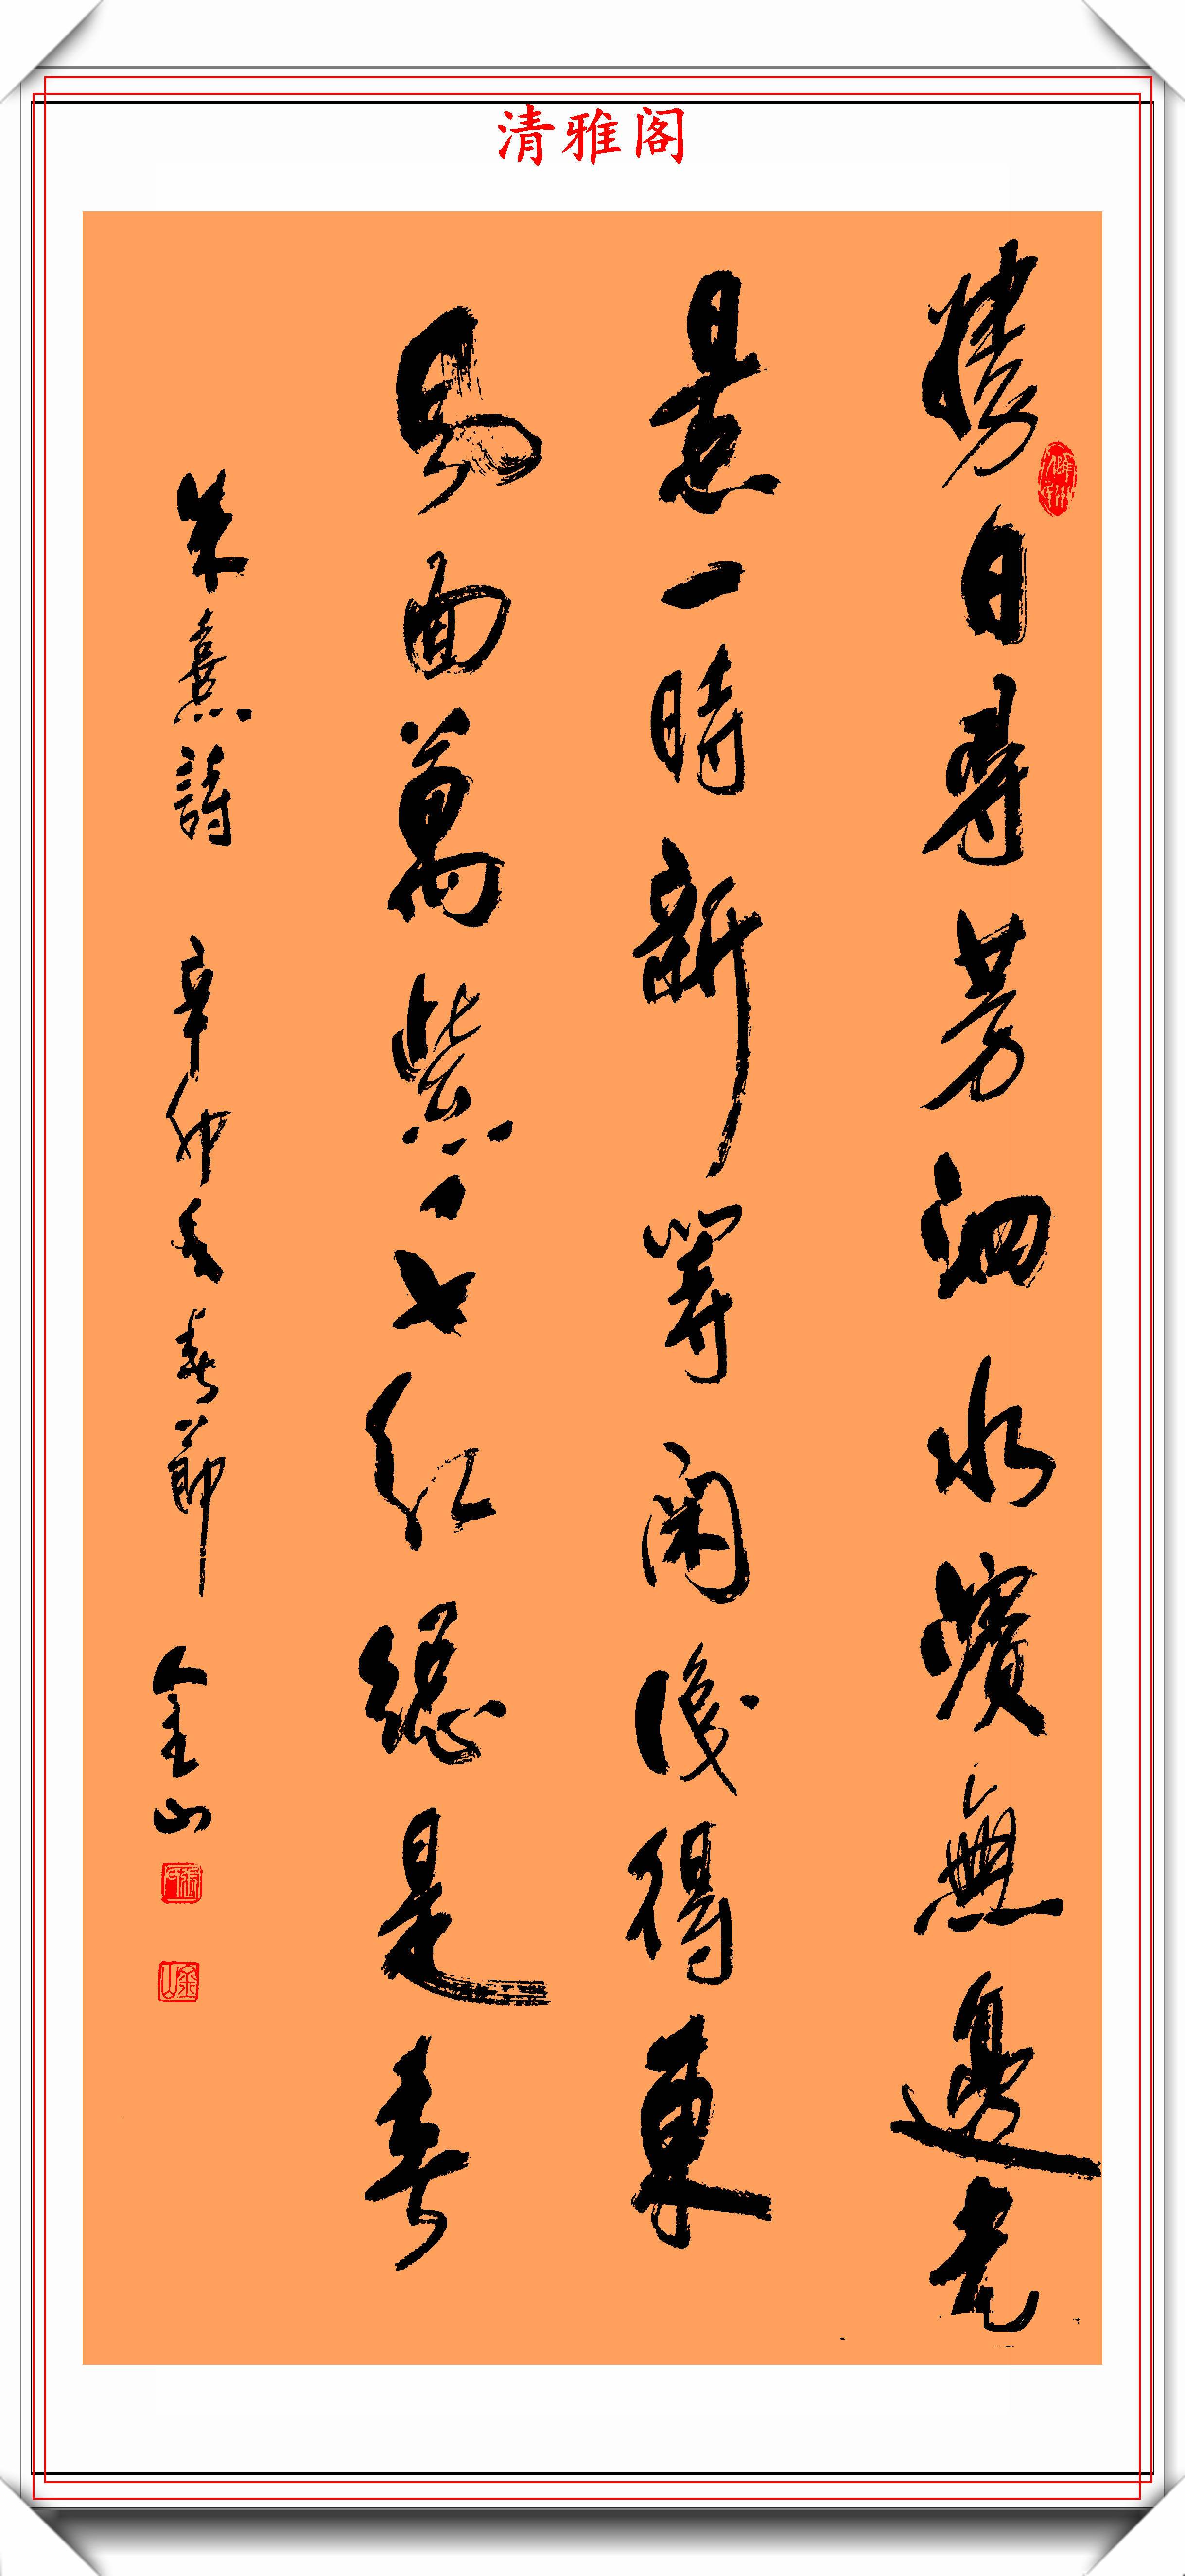 清雅阁
勝日尋芳泗水濱無邊光
景一時新等閑識得東
風面萬紫千紅總是春
朱熹詩 辛卯年春節 金山
金山